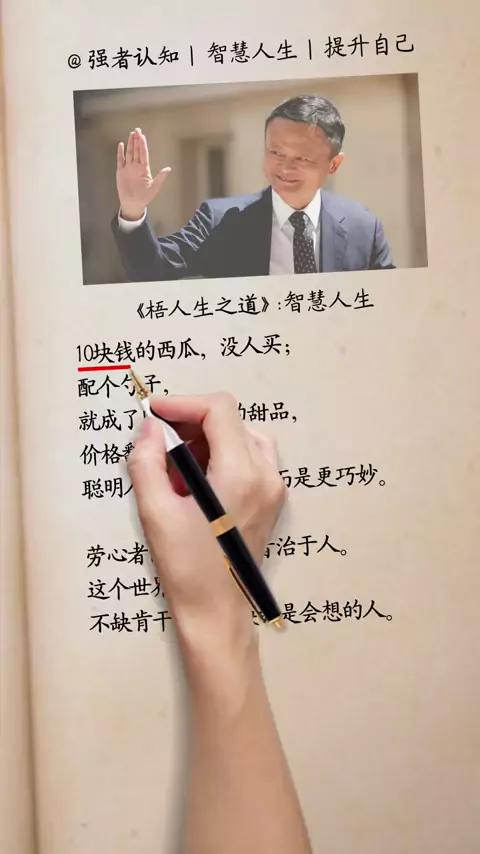 @强者认知 | 智慧人生 | 提升自己
《梧人生之道》:智慧人生
10块钱的西瓜，没人买；
配个勺子，
就成了 的甜品，
价格
聪明 而是更巧妙。
劳心者 治于人。
这个世界
不缺肯干 是会想的人。